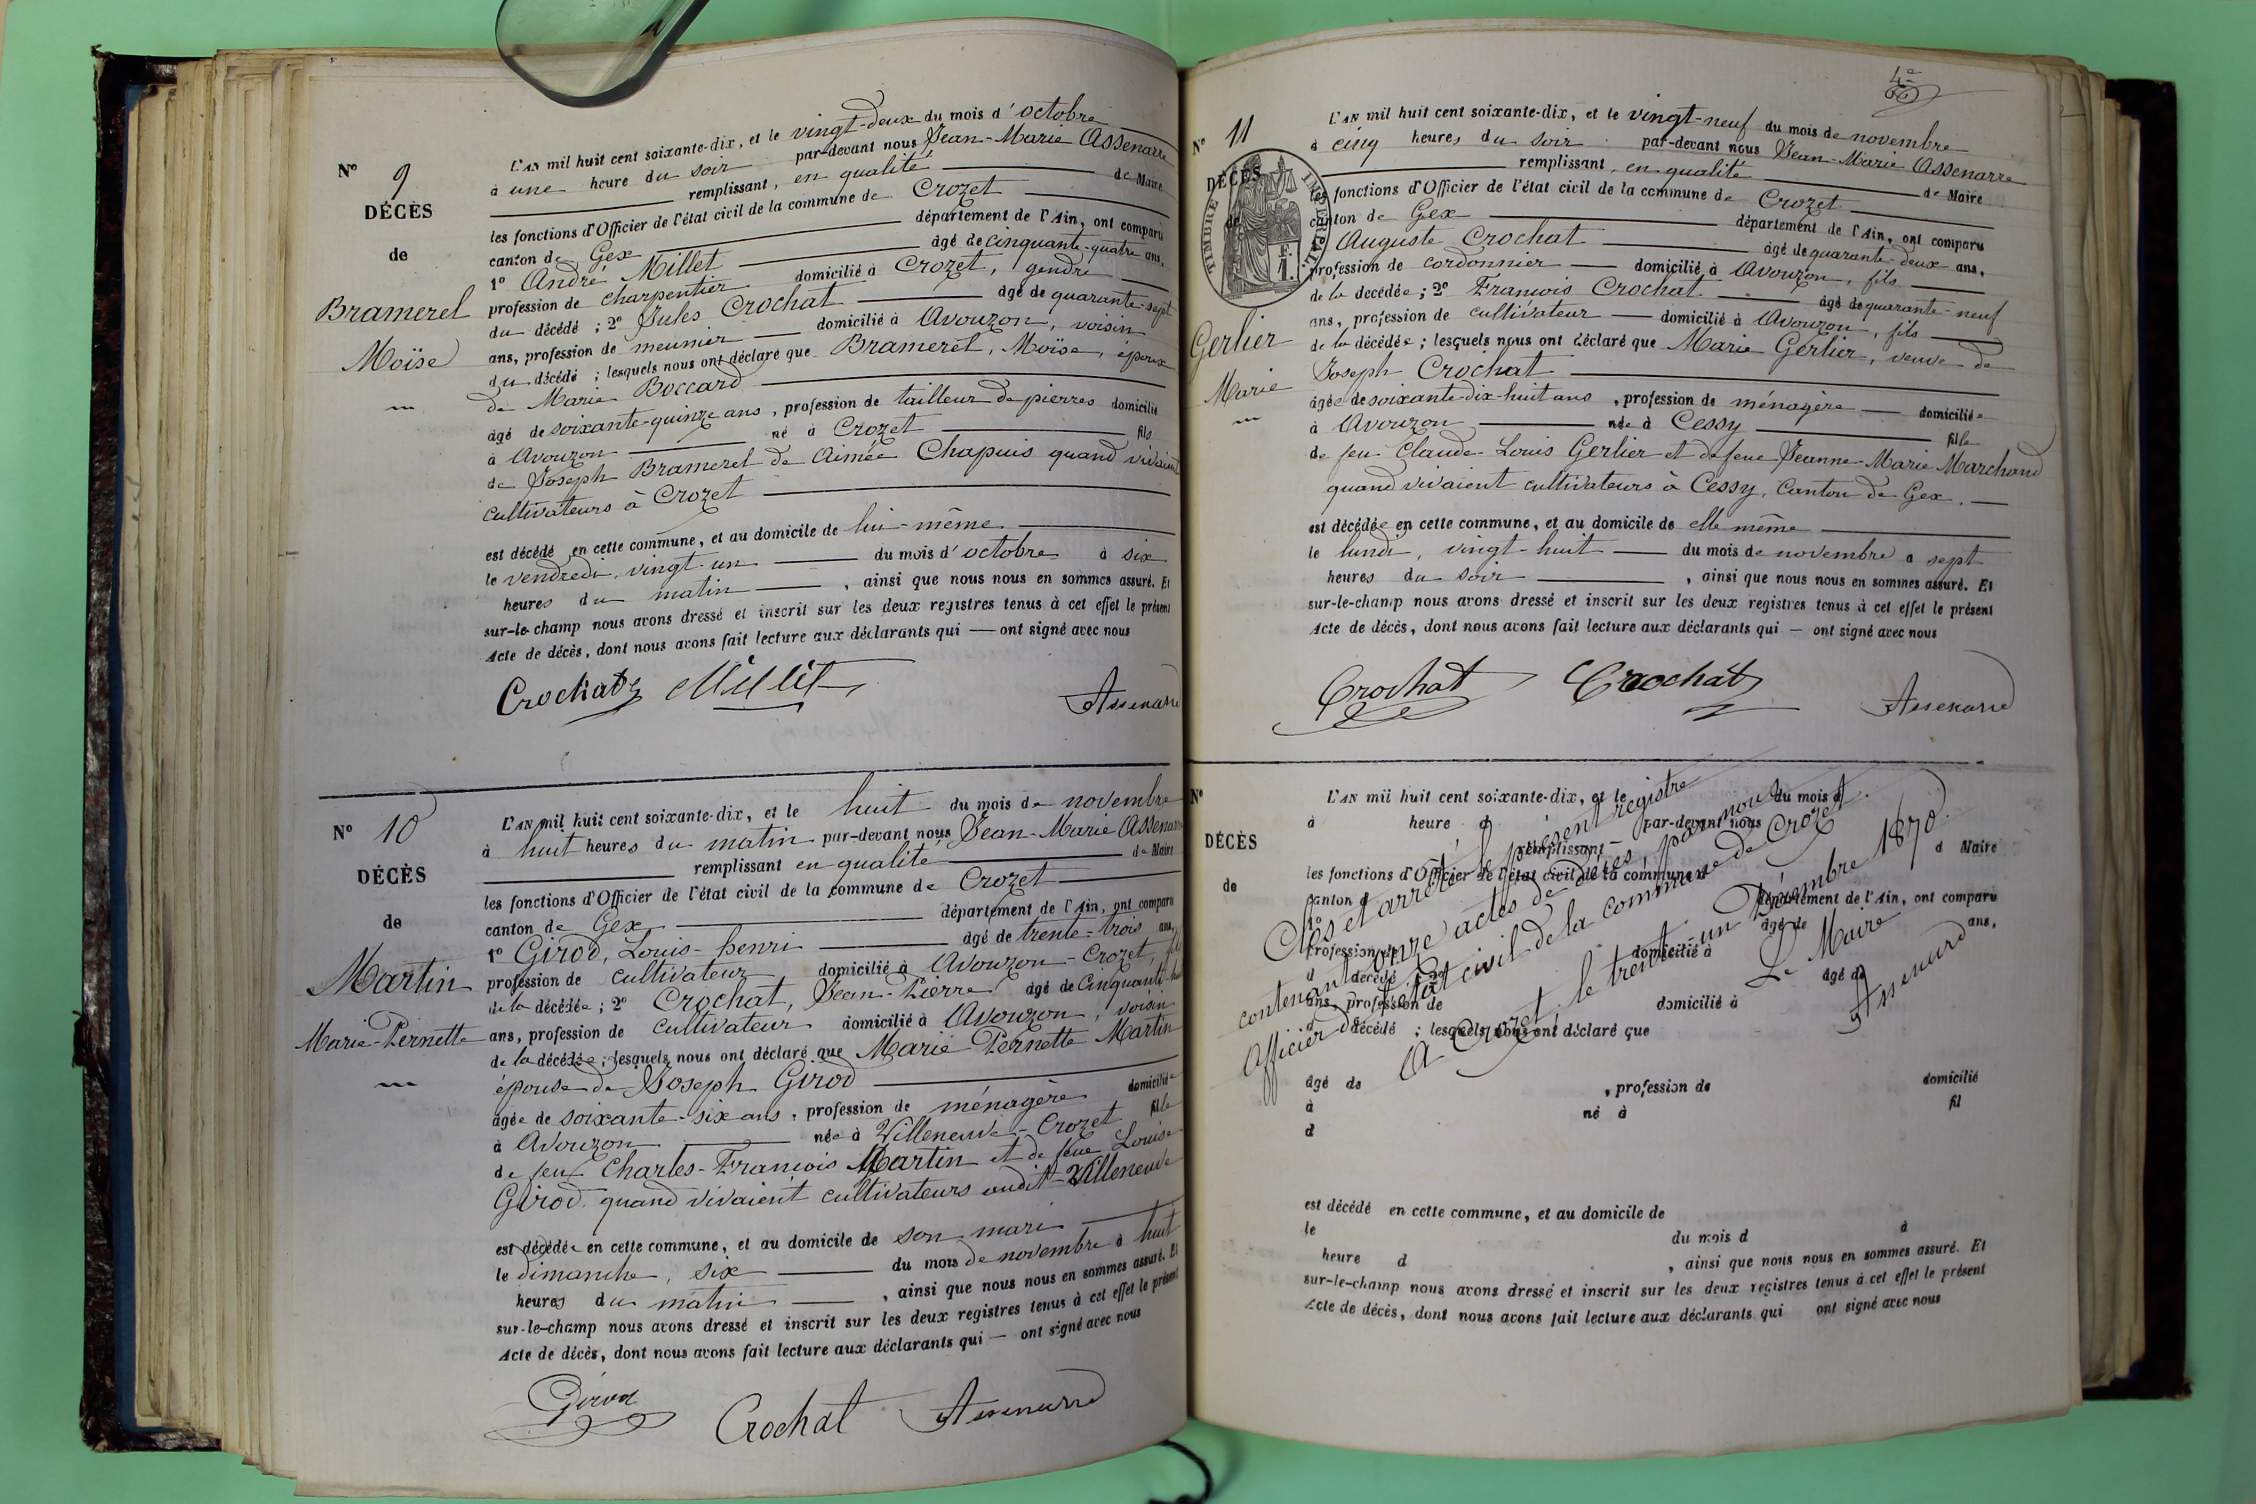 N° 9
DÉCÈS
de
Bramerel
Moïse
L'AN mil huit cent soixante-dix, et le vingt-deux du mois d'octobre
à une heure du soir par-devant nous Jean-Marie Assenarre
remplissant, en qualité de Maire
les fonctions d'Officier de l'état civil de la commune de Crozet
canton de Gex département de l'Ain, ont comparu
1° André Millet âgé de cinquante-quatre ans,
profession de charpentier domicilié à Crozet, gendre
du décédé ; 2° Jules Crochat âgé de quarante-sept
ans, profession de meunier domicilié à Avouzon, voisin
du décédé ; lesquels nous ont déclaré que Bramerel, Moïse, époux
de Marie Boccard
âgé de soixante-quinze ans, profession de tailleur de pierres domicilié
à Avouzon né à Crozet fils
de Joseph Bramerel de Aimée Chapuis quand vivaient
cultivateurs à Crozet
est décédé en cette commune, et au domicile de lui-même
le vendredi, vingt-un du mois d'octobre à six
heures du matin, ainsi que nous nous en sommes assuré. Et
sur-le-champ nous avons dressé et inscrit sur les deux registres tenus à cet effet le présent
Acte de décès, dont nous avons fait lecture aux déclarants qui — ont signé avec nous
Crochat Millet Assenarre
N° 10
DÉCÈS
de
Martin
Marie-Pernette
L'AN mil huit cent soixante-dix, et le huit du mois de novembre
à huit heures du matin par-devant nous Jean-Marie Assenarre
remplissant en qualité de Maire
les fonctions d'Officier de l'état civil de la commune de Crozet
canton de Gex département de l'Ain, ont comparu
1° Girod, Louis-henri âgé de trente-trois ans,
profession de cultivateur domicilié à Avouzon-Crozet, fils
de la décédée ; 2° Crochat, Jean-Pierre âgé de Cinquante-
ans, profession de cultivateur domicilié à Avouzon, voisin
de la décédée ; lesquels nous ont déclaré que Marie Pernette Martin
épouse de Joseph Girod
âgée de soixante-six ans, profession de ménagère domiciliée
à Avouzon née à Villeneuve-Crozet fille
de feu Charles-François Martin et de feue Louise
Girod quand vivaient cultivateurs audit-Villeneuve
est décédée en cette commune, et au domicile de son mari
le dimanche, six du mois de novembre à huit
heures du matin, ainsi que nous nous en sommes assuré. Et
sur-le-champ nous avons dressé et inscrit sur les deux registres tenus à cet effet le présent
Acte de décès, dont nous avons fait lecture aux déclarants qui — ont signé avec nous
Girod Crochat Assenarre
N° 11
DÉCÈS
de
TIMBRE IMPERIAL
Gerlier
Marie
L'AN mil huit cent soixante-dix, et le vingt-neuf du mois de novembre
à cinq heures du soir par-devant nous Jean-Marie Assenarre
remplissant, en qualité de Maire
les fonctions d'Officier de l'état civil de la commune de Crozet
canton de Gex département de l'Ain, ont comparu
Auguste Crochat âgé de quarante-deux ans,
profession de cordonnier domicilié à Avouzon, fils
de la décédée ; 2° François Crochat âgé de quarante-neuf
ans, profession de cultivateur domicilié à Avouzon, fils
de la décédée ; lesquels nous ont déclaré que Marie Gerlier, veuve de
Joseph Crochat
âgée de soixante-dix-huit ans, profession de ménagère domiciliée
à Avouzon née à Cessy fille
de feu Claude-Louis Gerlier et de feue Jeanne-Marie Marchand
quand vivaient cultivateurs à Cessy, Canton de Gex.
est décédée en cette commune, et au domicile de elle même
le lundi, vingt-huit du mois de novembre à sept
heures du soir, ainsi que nous nous en sommes assuré. Et
sur-le-champ nous avons dressé et inscrit sur les deux registres tenus à cet effet le présent
Acte de décès, dont nous avons fait lecture aux déclarants qui — ont signé avec nous
Crochat Crochat Assenarre
N°
DÉCÈS
de
L'AN mil huit cent soixante-dix, et le du mois d
à heure d par-devant nous
remplissant
les fonctions d'Officier de l'état civil de la commune d d Maire
canton d département de l'Ain, ont comparu
1° âgé de ans,
profession de domicilié à
d décédé ; 2° âgé de
ans, profession de domicilié à
d décédé ; lesquels nous ont déclaré que
âgé de , profession de domicilié
à né à fil
d
est décédé en cette commune, et au domicile de
le du mois d à
heure d , ainsi que nous nous en sommes assuré. Et
sur-le-champ nous avons dressé et inscrit sur les deux registres tenus à cet effet le présent
Acte de décès, dont nous avons fait lecture aux déclarants qui ont signé avec nous
Clos et arrêté le présent registre
contenant onze actes de décès par nous
Officier de l'état civil de la commune de Crozet.
A Crozet, le trente-un Décembre 1870.
Le Maire
Assenarre